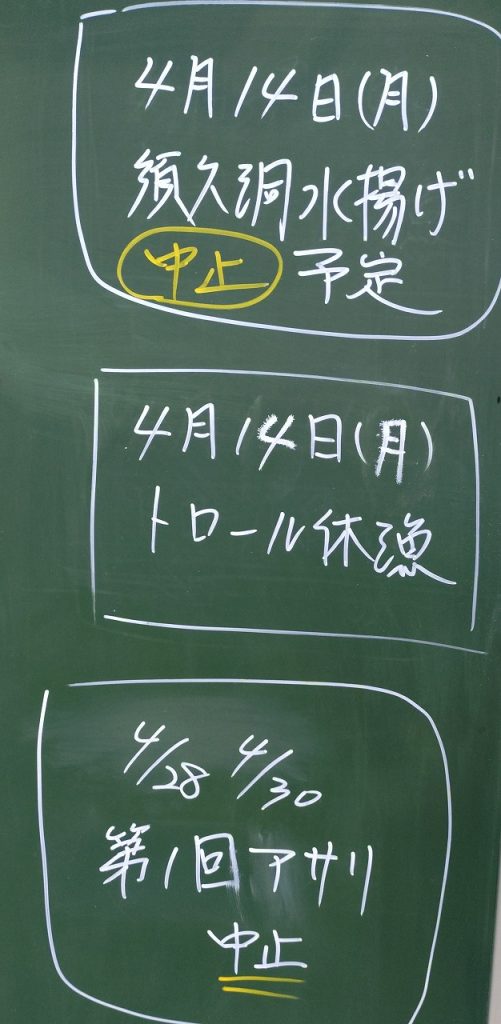 4月14日(月)
須久洞水揚げ
中止 予定
4月14日(月)
トロール休漁
4/28 4/30
第1回アサリ
中止